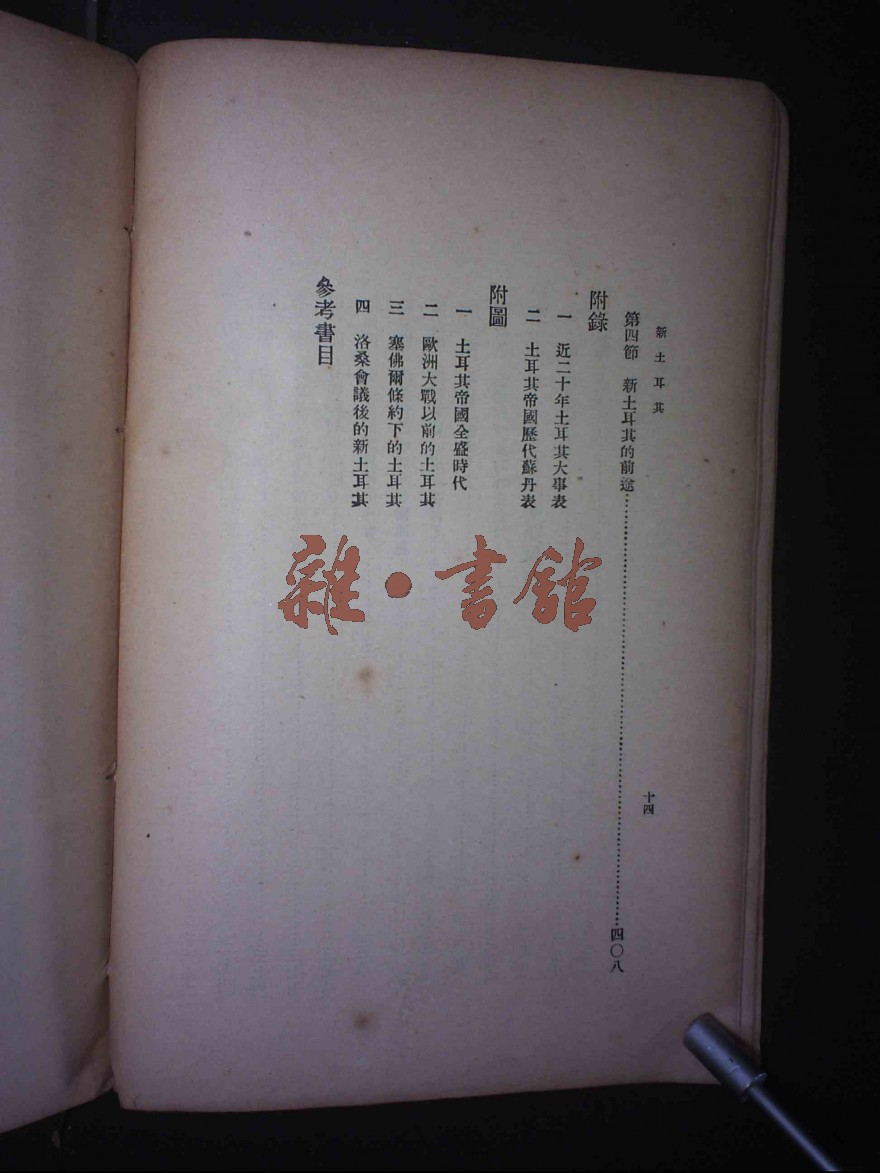 新土耳其
十四
第四節　新土耳其的前途……四〇八
附錄
一　近二十年土耳其大事表
二　土耳其帝國歷代蘇丹表
附圖
一　土耳其帝國全盛時代
二　歐洲大戰以前的土耳其
三　塞佛爾條約下的土耳其
四　洛桑會議後的新土耳其
參考書目
雜·書館